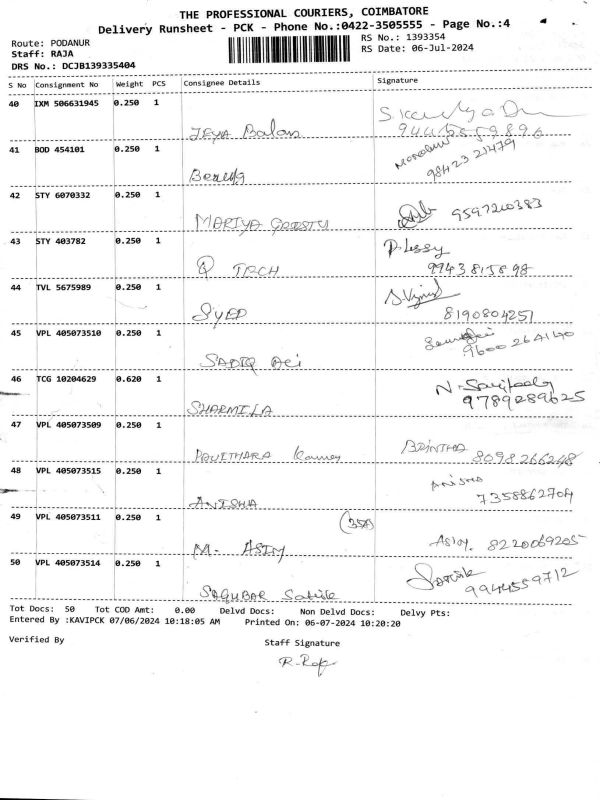 THE PROFESSIONAL COURIERS, COIMBATORE
Delivery Runsheet - PCK - Phone No.:0422-3505555 - Page No.:4
Route: PODANUR RS No.: 1393354
Staff: RAJA RS Date: 06-Jul-2024
DRS No.: DCJB139335404
S No Consignment No Weight PCS Consignee Details Signature
40 IXM 506631945 0.250 1
JEYA Balan
41 BOD 454101 0.250 1
98423 21479
42 STY 6070332 0.250 1
MARIYA 9597210383
43 STY 403782 0.250 1 P. Lessy
Q TECH
44 TVL 5675989 0.250 1
SYED 8190804251
45 VPL 405073510 0.250 1
SADIQ ALi 9600264140
46 TCG 10204629 0.620 1
SHARMILA 9789289625
47 VPL 405073509 0.250 1 BRINTHA
PAVITHARA 8098266248
48 VPL 405073515 0.250 1 Anisha
ANISHA 7358862704
49 VPL 405073511 0.250 1 (350)
M. ASIM 8220069205
50 VPL 405073514 0.250 1
SAGUBAR 9944559712
Tot Docs: 50 Tot COD Amt: 0.00 Delvd Docs: Non Delvd Docs: Delvy Pts:
Entered By :KAVIPCK 07/06/2024 10:18:05 AM Printed On: 06-07-2024 10:20:20
Verified By Staff Signature